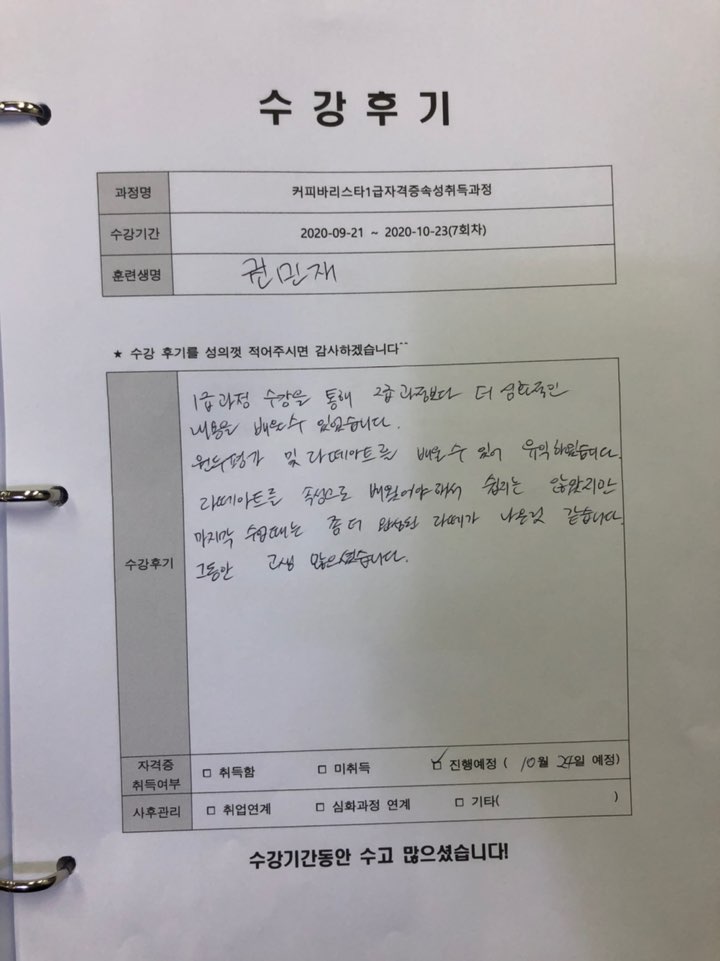 수 강 후 기
과정명 커피바리스타1급자격증속성취득과정
수강기간 2020-09-21 ~ 2020-10-23(7회차)
훈련생명 권민재
★ 수강 후기를 성의껏 적어주시면 감사하겠습니다^^
1급과정 수강을 통해 2급과정보다 더 심화적인
내용을 배울수 있었습니다.
원두평가 및 라떼아트를 배울수 있어 유익하였습니다.
라떼아트를 속성으로 배웠어야해서 쉽지는 않았지만
마지막 수업때는 좀더 완성된 라떼가 나온것 같습니다.
그동안 고생 많으셨습니다.
수강후기
자격증
취득여부
□ 취득함 □ 미취득 ☑ 진행예정 ( 10월 24일 예정)
사후관리 □ 취업연계 □ 심화과정 연계 □ 기타( )
수강기간동안 수고 많으셨습니다!